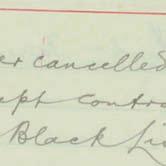 er cancelled
ept contra
Black Li